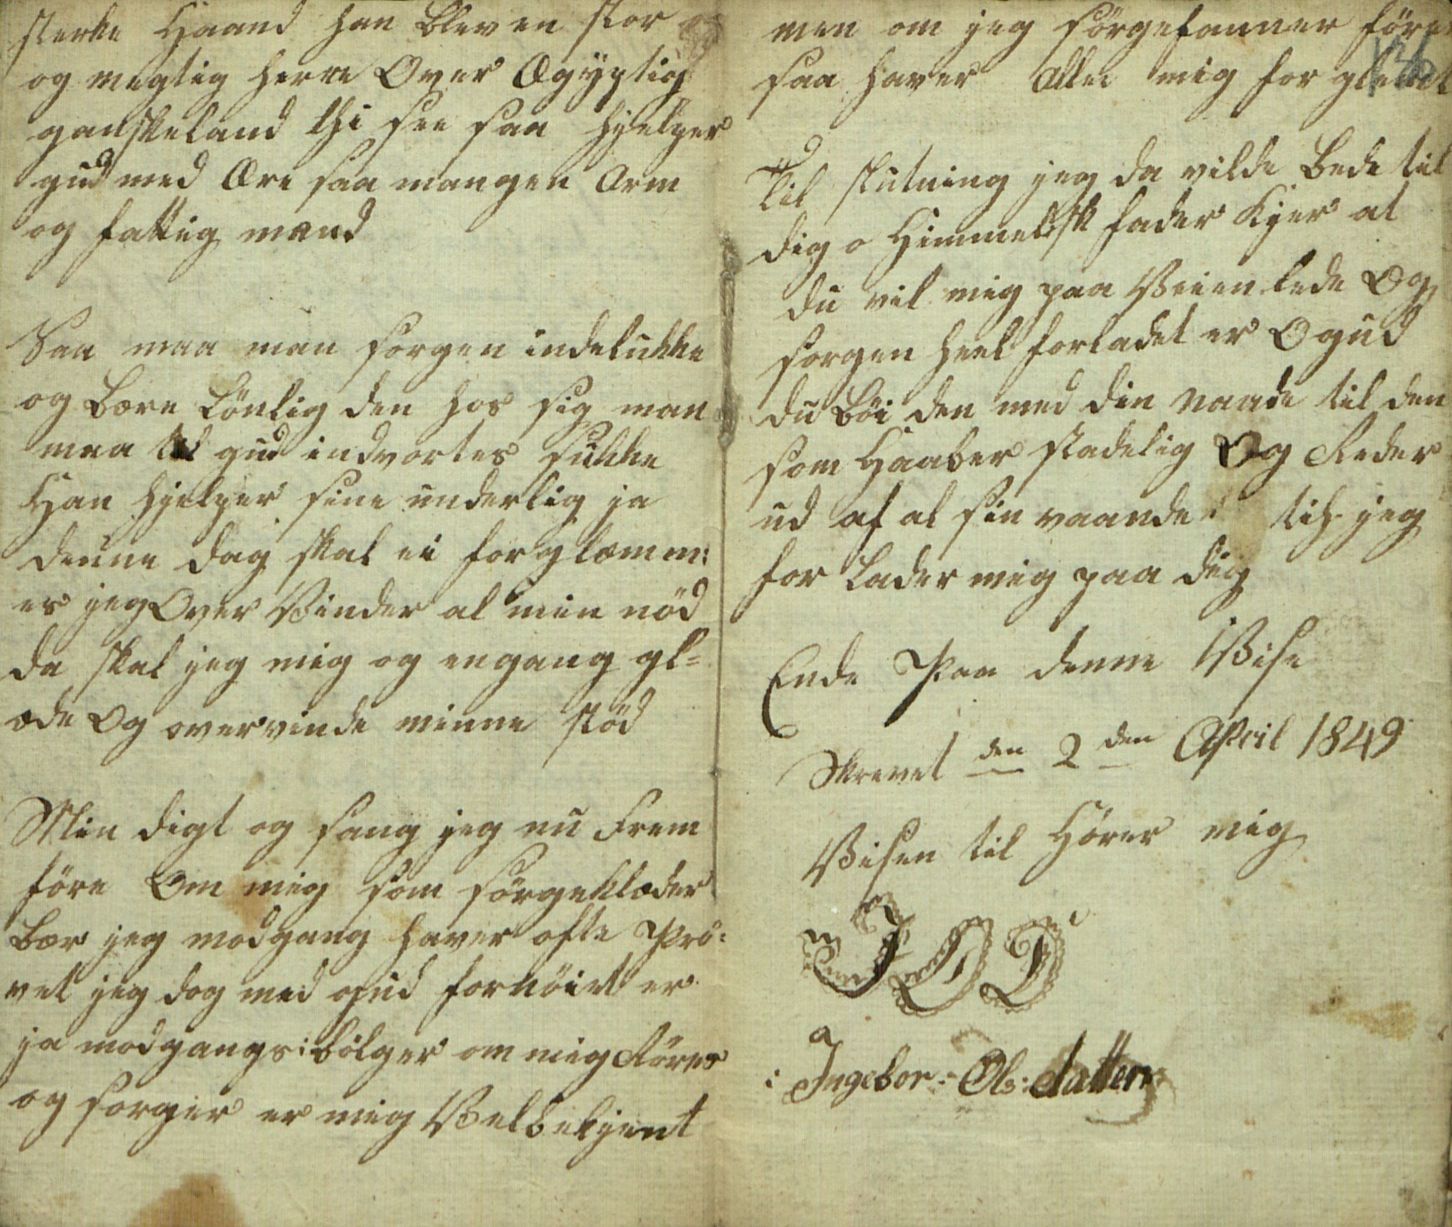 sterke Haand han Blev en stor
og megtig herre Over Ægyptig
ganskeland thi see saa hjelper
gud med Ære saa mangen Arm
og fattig mand
Saa maa man sorgen indelukke
og bære Lönlig den hos sig man
maa til gud indvortes sukke
Han hjelper sine underlig ja
denne dag skal ei forglemm:
es jeg Over Vinder al min nöd
da skal jeg mig og engang gl=
æde Og overvinde minne stöd
Min digt og sang jeg nu Frem
före Om mig som sörgeklæder
bær jeg modgang haver ofte Prö:
vet jeg dog med gud fornöiet er
ja modgangs:bölger om mig Röres
og sorger er mig Velbekjent
men om jeg sörgefanner före
saa haver alle mig for
Til slutning jeg da vilde Bede til
dig o Himmelsk fader Kjær at
du vil mig paa Veien lede Og
sorgen heel forladet er O gud
du böi den med din naade til den
som Haaber stadelig Og Reder
ud af al sin vaande tih jeg
for Lader mig paa dig
Ende Paa denne Vise
Skrevet den 2 den April 1849
Visen til Hörer mig
IOD
a
: Ingebor:- Ols: datter